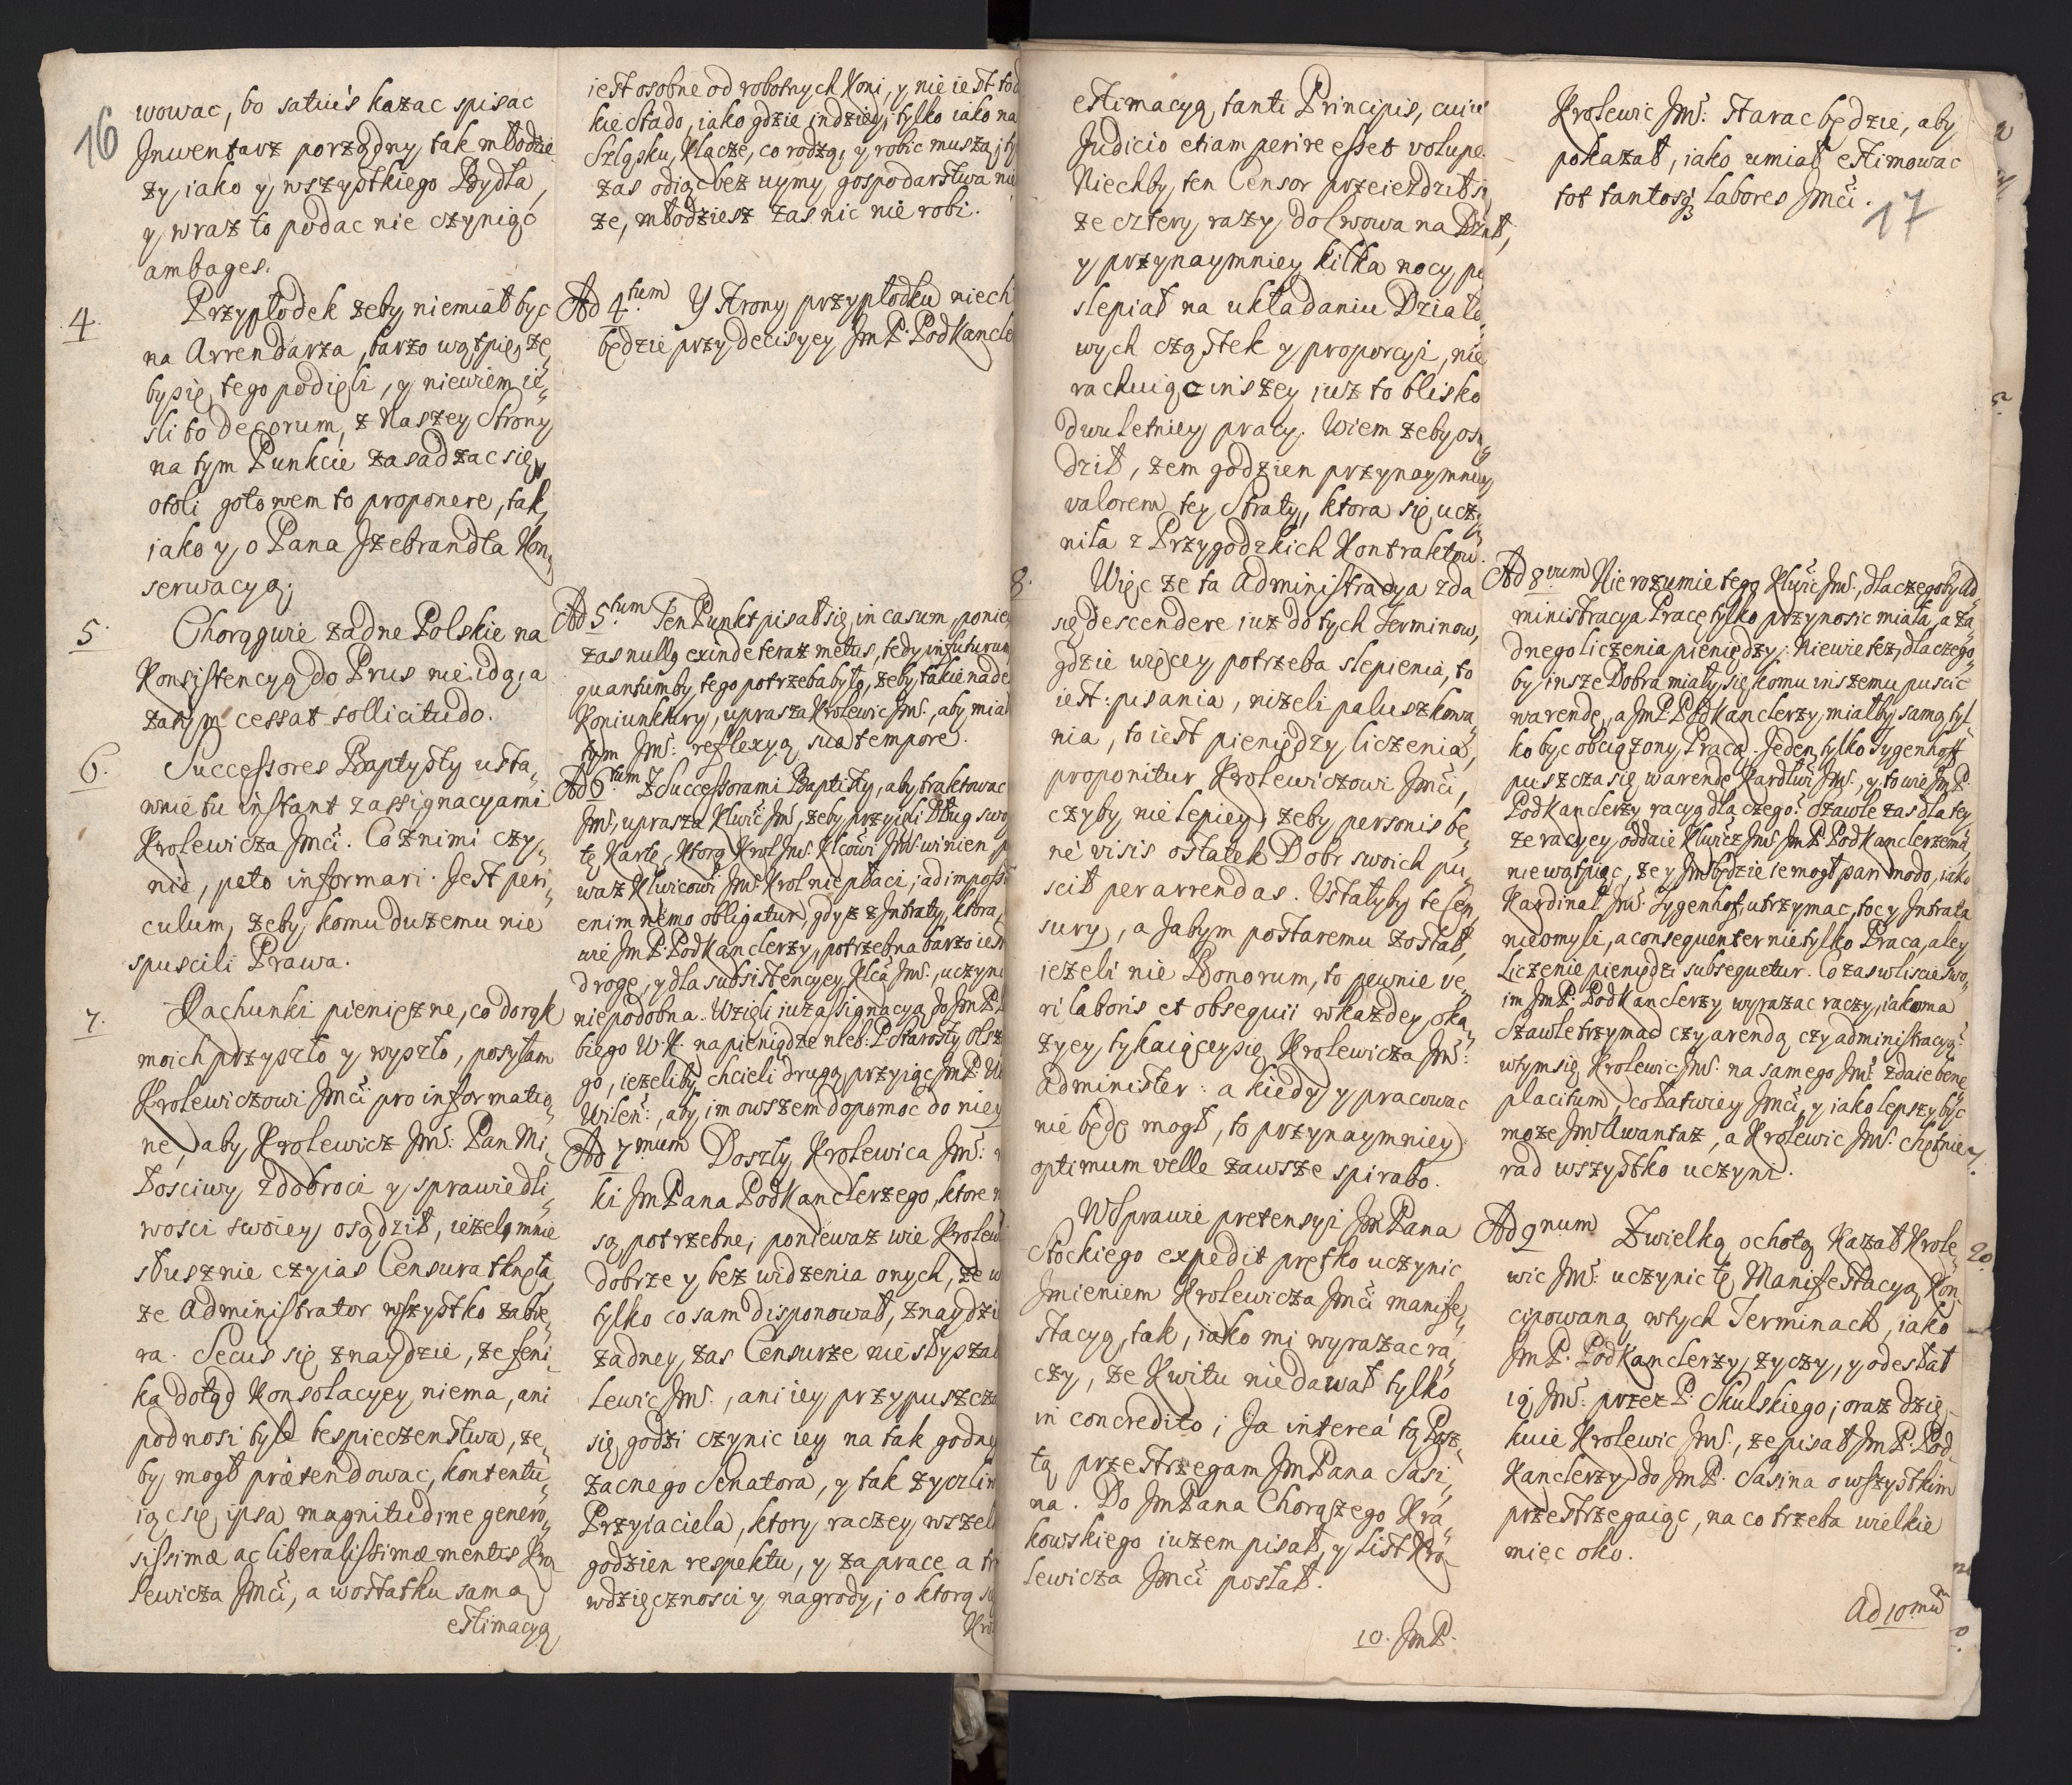 16
wowac, bo satius kazac spisac
Jnwentarz porządny tak młodzie
ży, iako y wszystkiego Bydła,
y wraz to podac nie czyniąc
ambages.
4.
Przypłodek zeby niemiał byc
na Arrendarza, barzo wątpię, ze
by się tego podięli, y niewiem ie„
sli to decorum, z Naszey Strony
na tym Punkcie zasadzac się,
otoli gotowem to proponere, tak,
iako y o Pana Jzebrandta Kon„
serwacyą;
5.
Chorągwie zadne Polskie na
Konsistencyą do Prus nie idą, a
zatym cessat sollicitudo.
6.
Successores Baptysty usta„
wnie tu instant z assignacyami
Krolewicza Jmći. Co znimi czy„
nić, peto informari. Jest peri„
culum, zeby komu duzemu nie
spuscili Prawa.
7.
Rachunki pieniężne, co do rąk
moich przyszło y wyszło, posyłam
Krolewiczowi Jmći pro informatio„
ne, aby Krolewicz Jmś: Pan Mi„
łosciwy z dobroci y sprawiedli„
wosci swoiey osądził, iezeli mnie
słusznie czyias Censura tknęła,
ze Administrator wszystko zabie„
ra. Secus się znaydzie, ze feni„
ka dotąd Konsolacyey niema, ani
podnosi tyle bespieczenstwa, ze„
by mogł prætendowac, kontentu„
iąc się ipsa magnitudine genero„
sissimæ ac liberalissimæ mentis Kro„
lewicza Jmći, a wostatku samą
estimacyą
iest osobne od robotnych Koni, y nie iest to
kie stado, iako gdzie indziey, tylko iako na
Szląsku, Klacze, co rodzą, y robic muszą, ty
zas odiąc bez uymy gospodarstwa nie
ze, młodziesz zas nic nie robi.
Ad 4tum Y Strony przypłodku niech
będzie przy decisyey Jm P. Podkancle
Ad 5tum Ten Punkt pisał się in casum, ponie
zas nullq exinde teraz metus, tedy in futurum
quantumby tego potrzeba było, zeby takie nade
Koniunktury, uprasza Krolewic Jmś., aby miał
tym Jmś: reflexyą suo tempore.
Ad 6tum Z Successorami Baptisty, aby traktowac
Jmś, uprasza Klwić Jmś, zeby przyięli Dług swoy
tę Kartę, Ktorą Krol Jmś. Klcowi Jmś. winien
waz Klwicowi Jmś. Krol niepłaci; ad imposs
enim nemo obligatur, gdyz z Jntraty, ktora,
wie Jm P. Podkanclerzy, potrzebna barzo iest
drogę, y dla subsistencyey Klća Jmś., uczyni
niepodobna. Wzięli iuz assignacyą do Jm P.
biego W. K. na pieniądze nieb: P. Starosty Olsz
go, iezeliby chcieli drugą przyiąc Jm P.
Wileń:, aby im owszem dopomoc do niey
Ad 7mum Doszły Krolewica Jmś:
ki Jm Pana Podkanclerzego, ktore
są potrzebne, poniewaz wie Krolew
dobrze y bez widzenia onych, ze
tylko co sam disponował, znaydzi
zadney zas Censurze nie słyszał
lewic Jmś:, ani iey przypuszcza
się godzi czynic iey na tak godne
zacnego Senatora, y tak zyczliw
Przyiaciela, ktory raczey wszel
godzien respektu, y za prace a
wdzięcznosci y nagrody; o ktorą
Kro
estimacyą tanti Principis, cuius
Judicio etiam perire esset volupe.
Niechby ten Censor przeiezdził się
ze cztery razy do Lwowa na Dział,
y przynaymniey kilka nocy po
slepiał na układaniu Działo„
wych cząstek y proporcyi, nie
rachuiąc inszey iuz to blisko
dwuletniey pracy. Wiem zeby osą„
dził, zem godzien przynaymniey
valorem tey Straty, ktora się uczy„
niła z Przygodzkich Kontraktow.
8.
Więc ze ta Administracya zda
się descendere iuz do tych Terminow,
gdzie więcey potrzeba slepienia, to
iest: pisania, nizeli paluszkowa„
nia, to iest pieniędzy liczenia,
proponitur Krolewiczowi Jmći,
czyby nie lepiey, zeby personis be„
ne visis ostatek Dobr swoich pu„
scił per arrendas. Ustałyby te Cen„
sury, a Jabym postaremu został,
iezeli nie Bonorum, to pewnie ve„
ri laboris et obsequii wkazdey oka„
zyey tykaiącey się Krolewicza Jmś:
Administer: a kiedy y pracowac
nie będę mogł, to przynaymniey
optimum velle zawsze spirabo.
W Sprawie pretensyi Jm Pana
Stockiego expedit prętko uczynic
Jmieniem Krolewicza Jmći manife„
stacyą, tak, iako mi wyrazac ra„
czy, ze Kwitu nie dawał tylko
in concredito; Ja intereá tą Posz„
tą przestrzegam Jm Pana Sasi„
na. Do Jm Pana Chorązego Kra„
kowskiego iuzem pisał, y List Kro„
lewicza Jmći posłał.
10. Jm P.
Krolewic Jmś: starac będzie, aby
pokazał, iako umiał estimowac
tot tantosq3 labores Jmći.
17
Ad 8vum Nie rozumie tego Klwić Jmś., dla czegoby Ad„
ministracya Pracę tylko przynosic miała, a za„
dnego liczenia pieniędzy: Niewie tez, dla czego„
by insze Dobra miały się komu inszemu puscic
w arendę, a Jm P. Podkanclerzy miałby samą tyl„
ko byc obciązony Pracą. Jeden tylko Tygenhoff
puszcza się w arendę Kardłwi Jmś., y to wie Jm P.
Podkanclerzy racyą dla czego? Szawle zas dla tey
ze racyey oddaie Klwicz Jmś Jm P. Podkanclerzemu,
nie wątpiąc, ze y Jmś będzie ie mogł pari modo, iako
Kardinał Jmś. Tygenhof, utrzymac, toc y Jntrata
nieomyli, a consequenter nie tylko Praca, ale y
Liczenie pieniędzi subsequetur. Co zas w liscie swo„
im Jm P. Podkanclerzy wyrazac raczy, iako ma
Szawle trzymac czy arendą, czy administracyą:
w tym się Krolewic Jmś. na samego Jmś. zdaie bene
placitum, co łatwiey Jmći, y iako lepszy byc
moze Jmś Awantaz, a Krolewic Jmś. chętnie
rad wszystko uczyni.
Ad 9num Z wielką ochotą Kazał Krole„
wic Jmś: uczynic tę Manifestacyą, Kon„
cipowaną w tych Terminach, iako
Jm P. Podkanclerzy zyczy, y odesłał
ią Jmś: przez P. Skulskiego; oraz dzię„
kuie Krolewic Jmś., ze pisał Jm P. Pod„
kanclerzy do Jm P. Sasina o wszystkim
przestrzegaiąc, na co trzeba wielkie
miec oko.
Ad 10mum